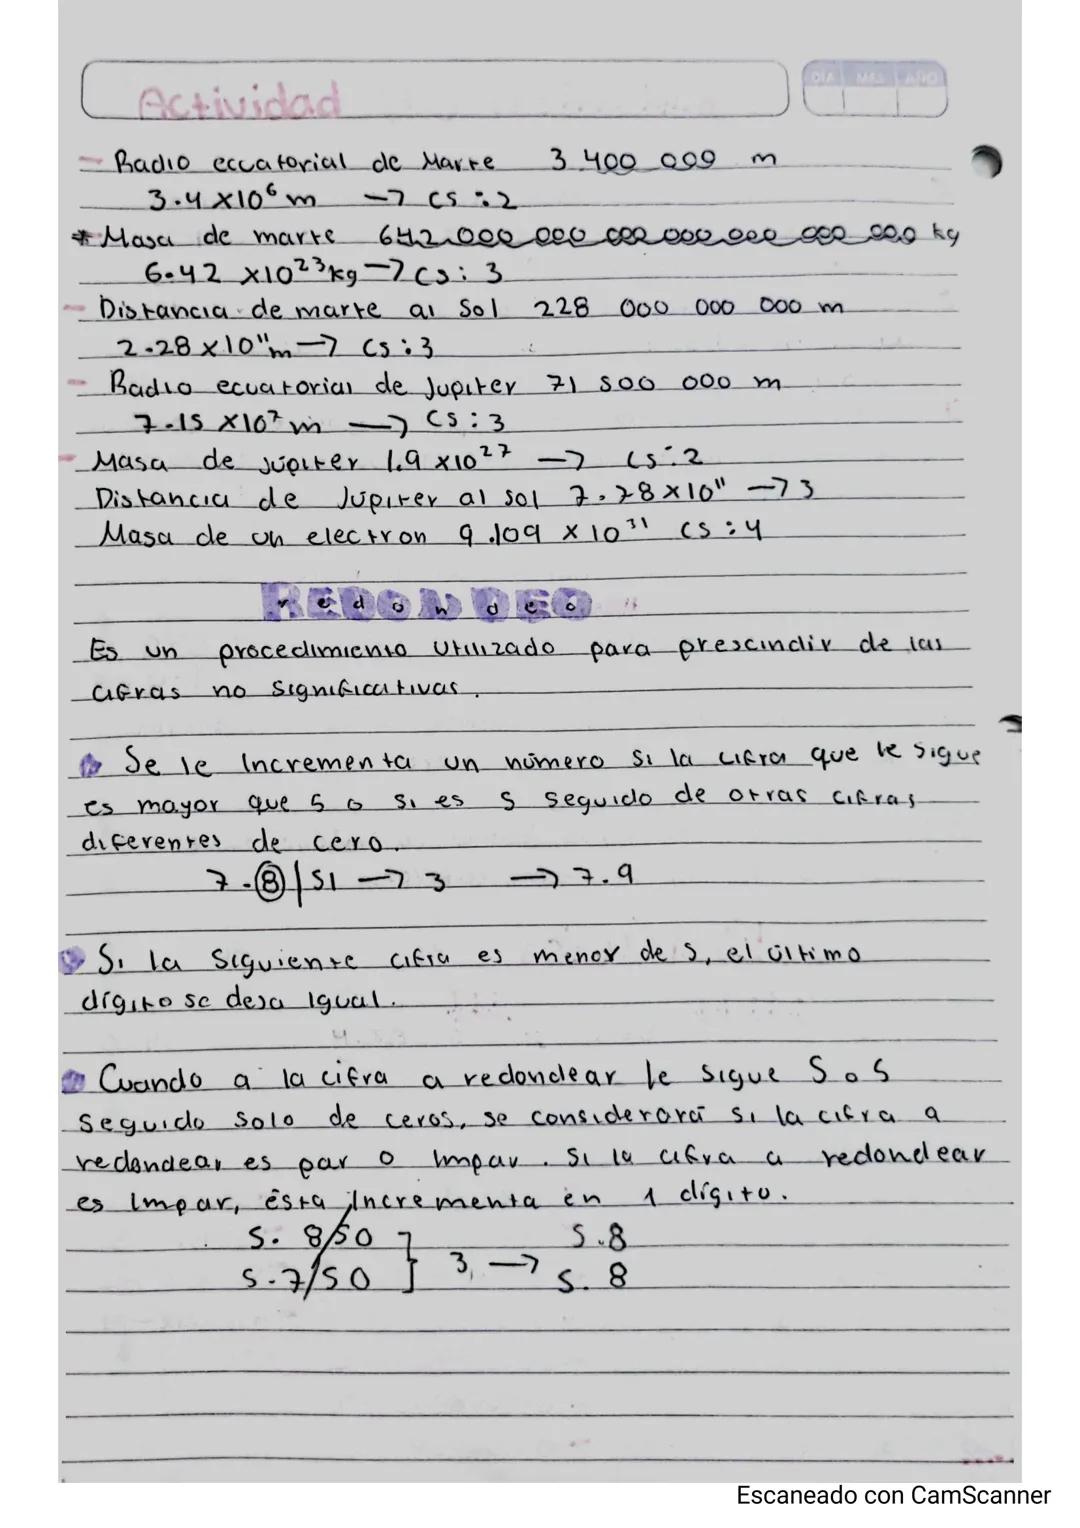 Actividad
DIA MES AÑO
- Radio eccatorial de Marte 3 400 000 m
3.4 x10⁶ m → CS : 2
* Masa de marte 642 000 000 000 000 000 000 000 kg
6.42 x10²³ kg → CS : 3
- Distancia de marte al Sol 228 000 000 000 m
2.28 x10¹¹ m → CS : 3
- Radio ecuatorial de Jupiter 71 500 000 m
7.15 x10⁷ m → CS : 3
- Masa de Júpiter 1.9 x10²⁷ → CS : 2
Distancia de Júpiter al sol 7.78 x10¹¹ → 3
Masa de un electron 9.109 x 10³¹ CS : 4
REDONDEO
redondeo
Es un procedimiento utilizado para prescindir de las
cifras no significativas.
Se le Incrementa un número si la cifra que le sigue
es mayor que 5 o si es 5 seguido de otras cifras
diferentes de cero.
7.8|51 → 3 → 7.9
Si la siguiente cifra es menor de 5, el último
dígito se deja igual.
Cuando a la cifra a redondear le sigue 5 o 5
seguido solo de ceros, se considerará si la cifra a
redondear es par o impar. Si la cifra a redondear
es impar, ésta incrementa en 1 dígito.
5.8/50 } 3 → 5.8
5.7/50 } 5.8
Escaneado con CamScanner